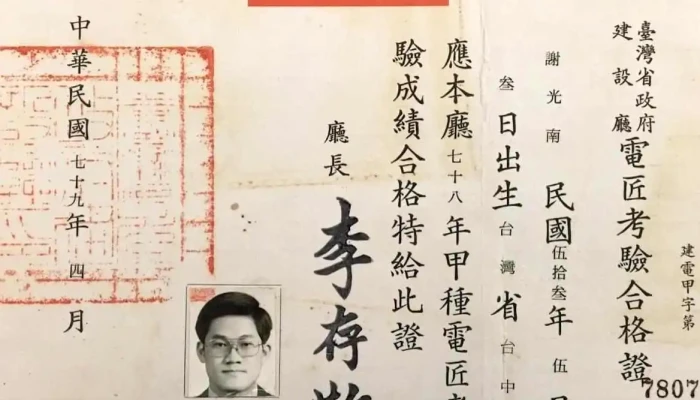 臺灣省政府
建設廳
電匠考驗合格證
建電甲字第
7807
謝光南 民國伍拾叁年伍
叁日出生台灣省台中
應本廳七十八年甲種電匠
驗成績合格特給此證
廳長 李存
中華民國七十九年四月